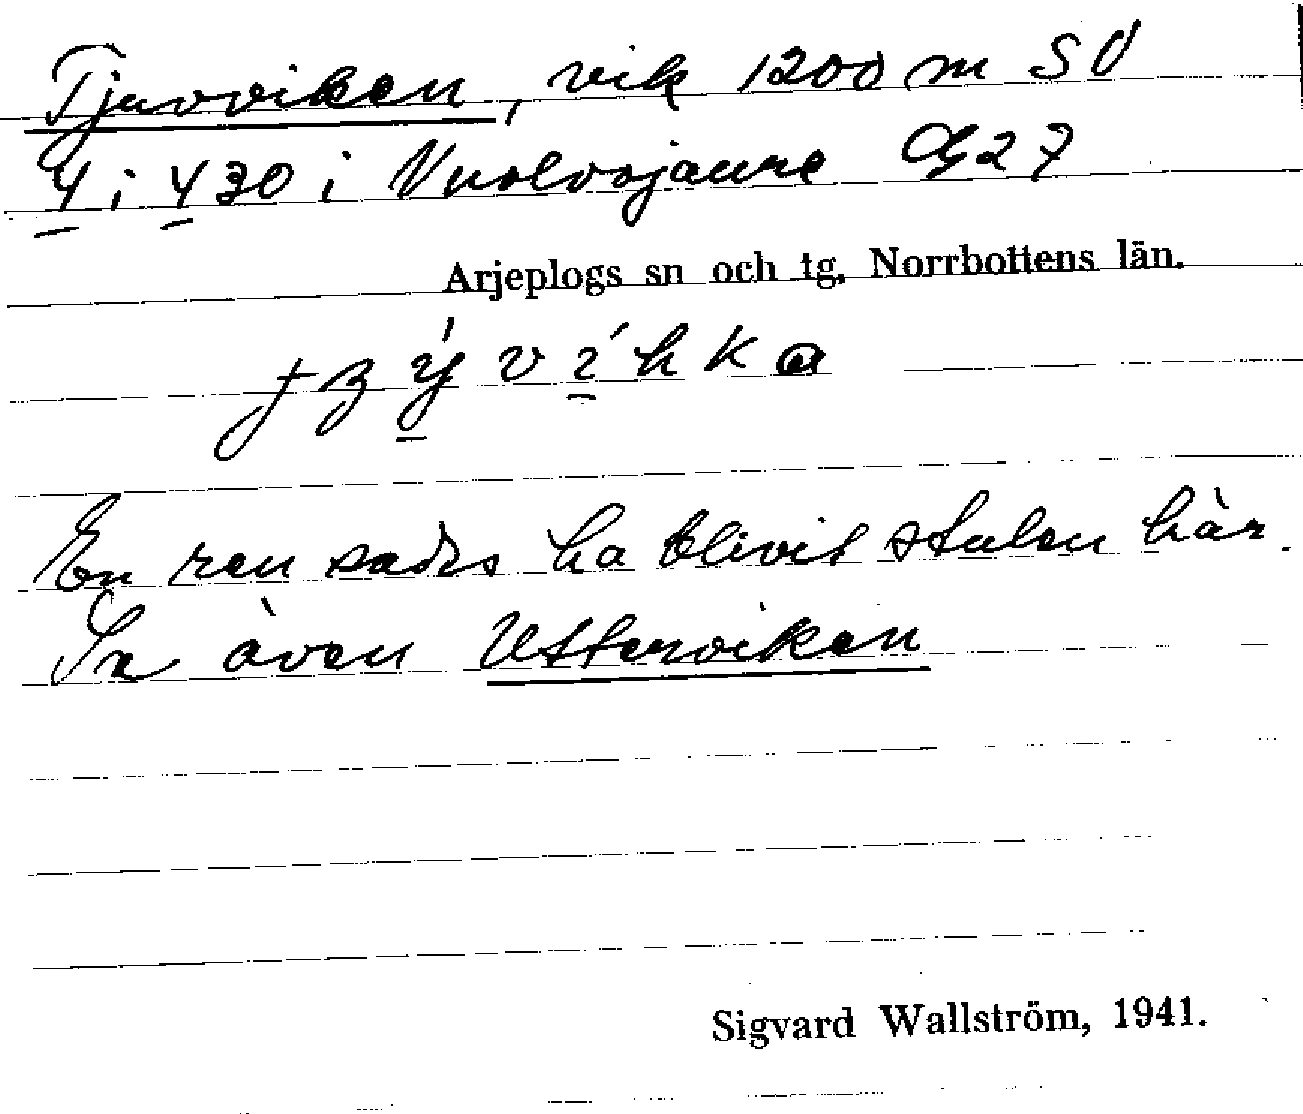 Tjuvviken, vik 1200 m SV
4 i 430 i Vuolvojaure G27
Arjeplogs sn och tg. Norrbottens län.
En ren sades ha blivit stulen här.
Se även Utterviken
Sigvard Wallström, 1941.